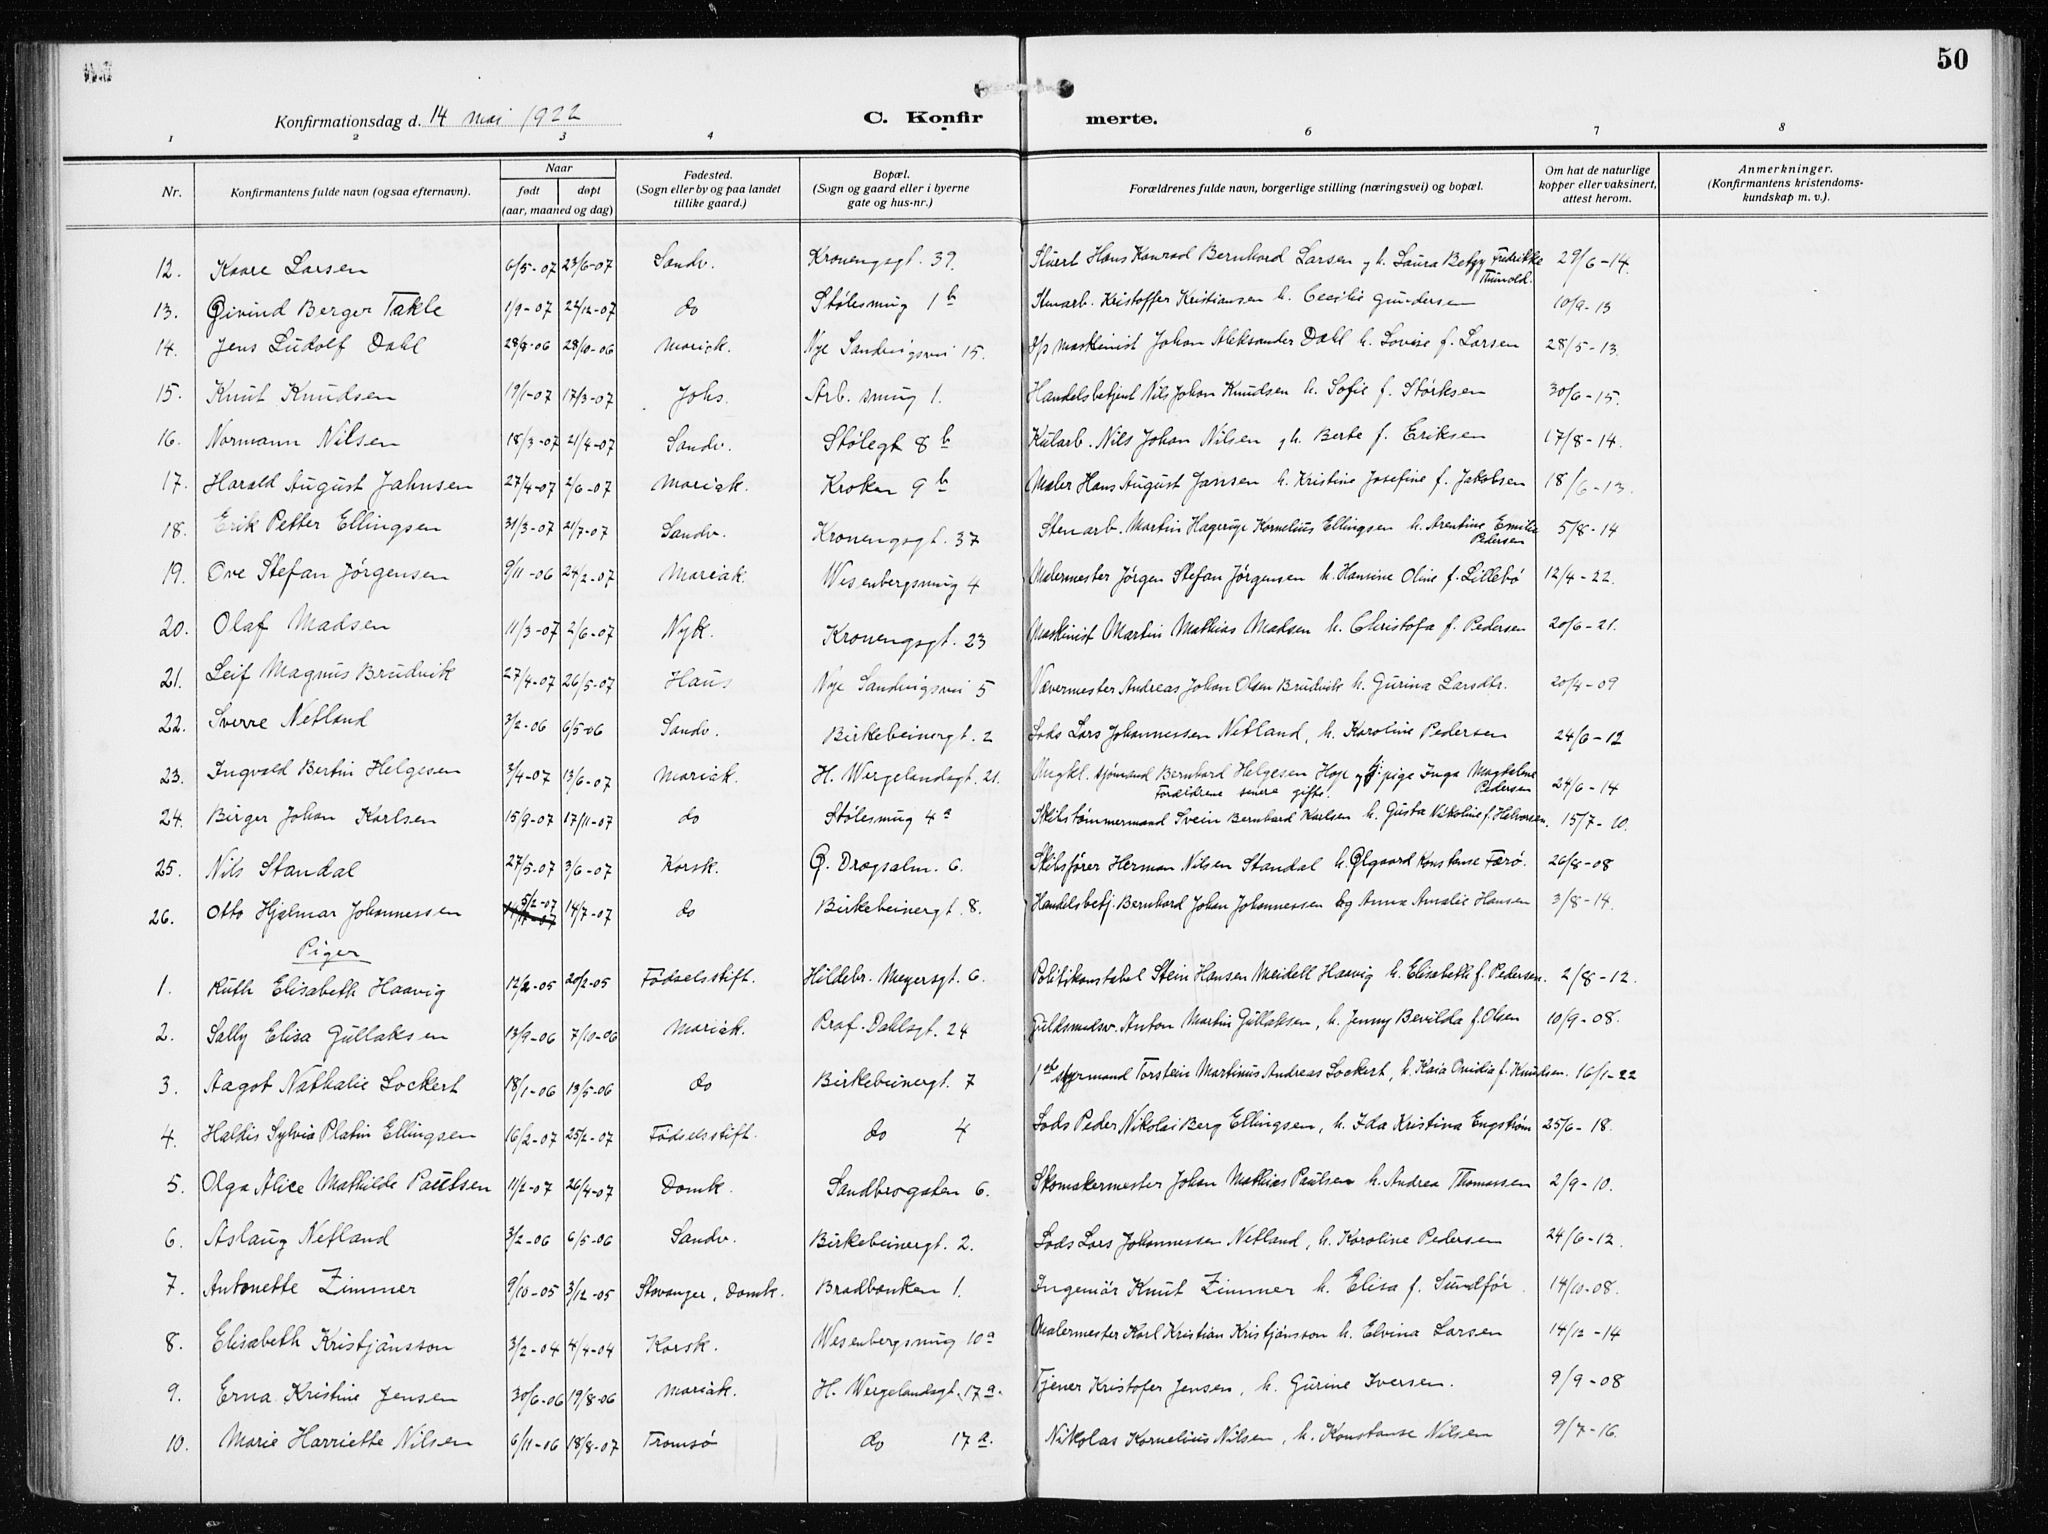 50
Konfirmationsdag d. 14 mai 1922
C. Konfirmerte.
1 2 3 4 6 7 8
Nr. Konfirmantens fulde navn (ogsaa efternavn). Naar født døpt (aar, maaned og dag) Fødested. (Sogn eller by og paa landet tillike gaard.) Bopæl. (Sogn og gaard eller i byerne gate og hus-nr.) Forældrenes fulde navn, borgerlige stilling (næringsvei) og bopæl. Om hat de naturlige kopper eller vaksinert, attest herom. Anmerkninger. (Konfirmantens kristendomskundskap m. v.).
12. Kaare Larsen 6/5-07 23/6-07 Sandv. Kronengsgt. 39. Stuert Hans Konrad Bernhard Larsen og h. Laura Betzy Fredrikke Thunold. 29/6-14.
13. Øivind Berger Takle 1/9-07 22/12-07 do Stølesmug 1b Stenarb. Kristoffer Kristiansen h. Cecilie Gundersen 10/9-13
14. Jens Ludolf Dahl 28/8-06 28/10-06 Mariak. Nye Sandvigsvei 15. D/p maskinist Johan Aleksander Dahl h. Lovise f. Larsen 28/5-13.
15. Knut Knudsen 19/1-07 17/3-07 Johs. Arb. smug 1. Handelsbetjent Nils Johan Knudsen h. Sofie f. Størksen 30/6-15.
16. Normann Nilsen 18/3-07 21/4-07 Sandv. Stølegt 8b Kularb. Nils Johan Nilsen og h. Berte f. Eriksen 17/8-14.
17. Harald August Jahnsen 27/4-07 2/6-07 Mariak. Kroken 9b Maler Hans August Jansen h. Kristine Josefine f. Jakobsen 18/6-13.
18. Erik Petter Ellingsen 31/3-07 21/7-07 Sandv. Kronengsgt. 37 Stenarb. Martin Hagerup Kornelius Ellingsen h. Arentine Emilie Pedersen 5/8-14
19. Ove Stefan Jørgensen 9/11-06 24/2-07 Mariak. Wesenbergsmug 4 Malermester Jørgen Stefan Jørgensen h. Hansine Oline f. Lillebø 12/4-22.
20. Olaf Madsen 11/3-07 2/6-07 Nyk. Kronengsgt. 23 Maskinist Martin Mathias Madsen h. Christofa f. Pedersen 20/6-21.
21. Leif Magnus Brudvik 27/4-07 26/5-07 Haus Nye Sandvigsvei 5 Vævermester Andreas Johan Olsen Brudvik h. Gurina Larsdtr. 20/4-09
22. Sverre Netland 3/2-06 6/5-06 Sandv. Birkebeinergt. 2 Lods Lars Johannessen Netland, h. Karoline Pedersen 24/6-12
23. Ingvald Bertin Helgesen 3/4-07 13/6-07 Mariak. H. Wergelandsgt. 21. Ungkl. sjømand Bernhard Helgesen Hope og pige Inga Magdalene Pedersen Forældrene senere gifte. 24/6-14
24. Birger Johan Karlsen 15/9-07 17/11-07 do Stølesmug 4a Skibstømmermand Svein Bernhard Karlsen h. Gusta Nikoline f. Halvorsen. 15/7-10.
25. Nils Standal 27/5-07 3/6-07 Korsk. Ø. Dragsalm. 6. Skibsfører Herman Nilsen Standal h. Ølgaard Konstanse Færø. 26/8-08
26. Otto Hjalmar Johannessen 5/2-07 14/7-07 do Birkebeinergt. 8. Handelsbetj. Bernhard Johan Johannessen og Anna Amalie Hansen 3/8-14.
Piger
1. Ruth Elisabeth Haavig 12/2-05 20/2-05 Fødselsstift. Hildebr. Meyersgt. 6. Politikonstabel Stein Hansen Meidell Haavig h. Elisabeth f. Pedersen. 2/8-12.
2. Sally Elisa Gullaksen 13/9-06 7/10-06 Mariak. Prof. Dahlsgt. 24 Guldsmedsv. Anton Martin Gullaksen, h. Jenny Bevilda f. Olsen 10/9-08.
3. Aagot Nathalie Lockert 18/1-06 13/5-06 do Birkebeinergt. 7 1ste styrmand Torstein Martinus Andreas Lockert, h. Kaia Ovidia f. Knudsen. 16/1-22
4. Haldis Sylvia Platin Ellingsen 16/2-07 25/2-07 Fødselsstift. do 4 Lods Peder Nikolai Berg Ellingsen, h. Ida Kristina Engstrøm 25/6-18.
5. Olga Alice Mathilde Paulsen 11/2-07 26/4-07 Domk. Sandbrogaten 6. Skomakermester Johan Mathias Paulsen h. Andrea Thomassen 2/9-10.
6. Aslaug Netland 3/2-06 6/5-06 Sandv. Birkebeinergt. 2. Lods Lars Johannessen Netland, h. Karoline Pedersen 24/6-12.
7. Antonette Zimmer 9/10-05 3/12-05 Stavanger, Domk. Bradbenken 1. Ingeniør Knut Zimmer h. Elisa f. Sundfør. 14/10-08.
8. Elisabeth Kristjánsson 3/2-04 4/4-04 Korsk. Wesenbergsmug 10a Malermester Karl Kristian Kristjánsson h. Elvina Larsen 14/12-14
9. Erna Kristine Jensen 30/6-06 19/8-06 Mariak. H. Wergelandsgt. 17a. Tjener Kristofer Jensen, h. Gurine Iversen. 9/9-08
10. Marie Harriette Nilsen 6/11-06 18/8-07 Tromsø do 17a. Nikolas Kornelius Nilsen, h. Konstanse Nilsen 9/7-16.